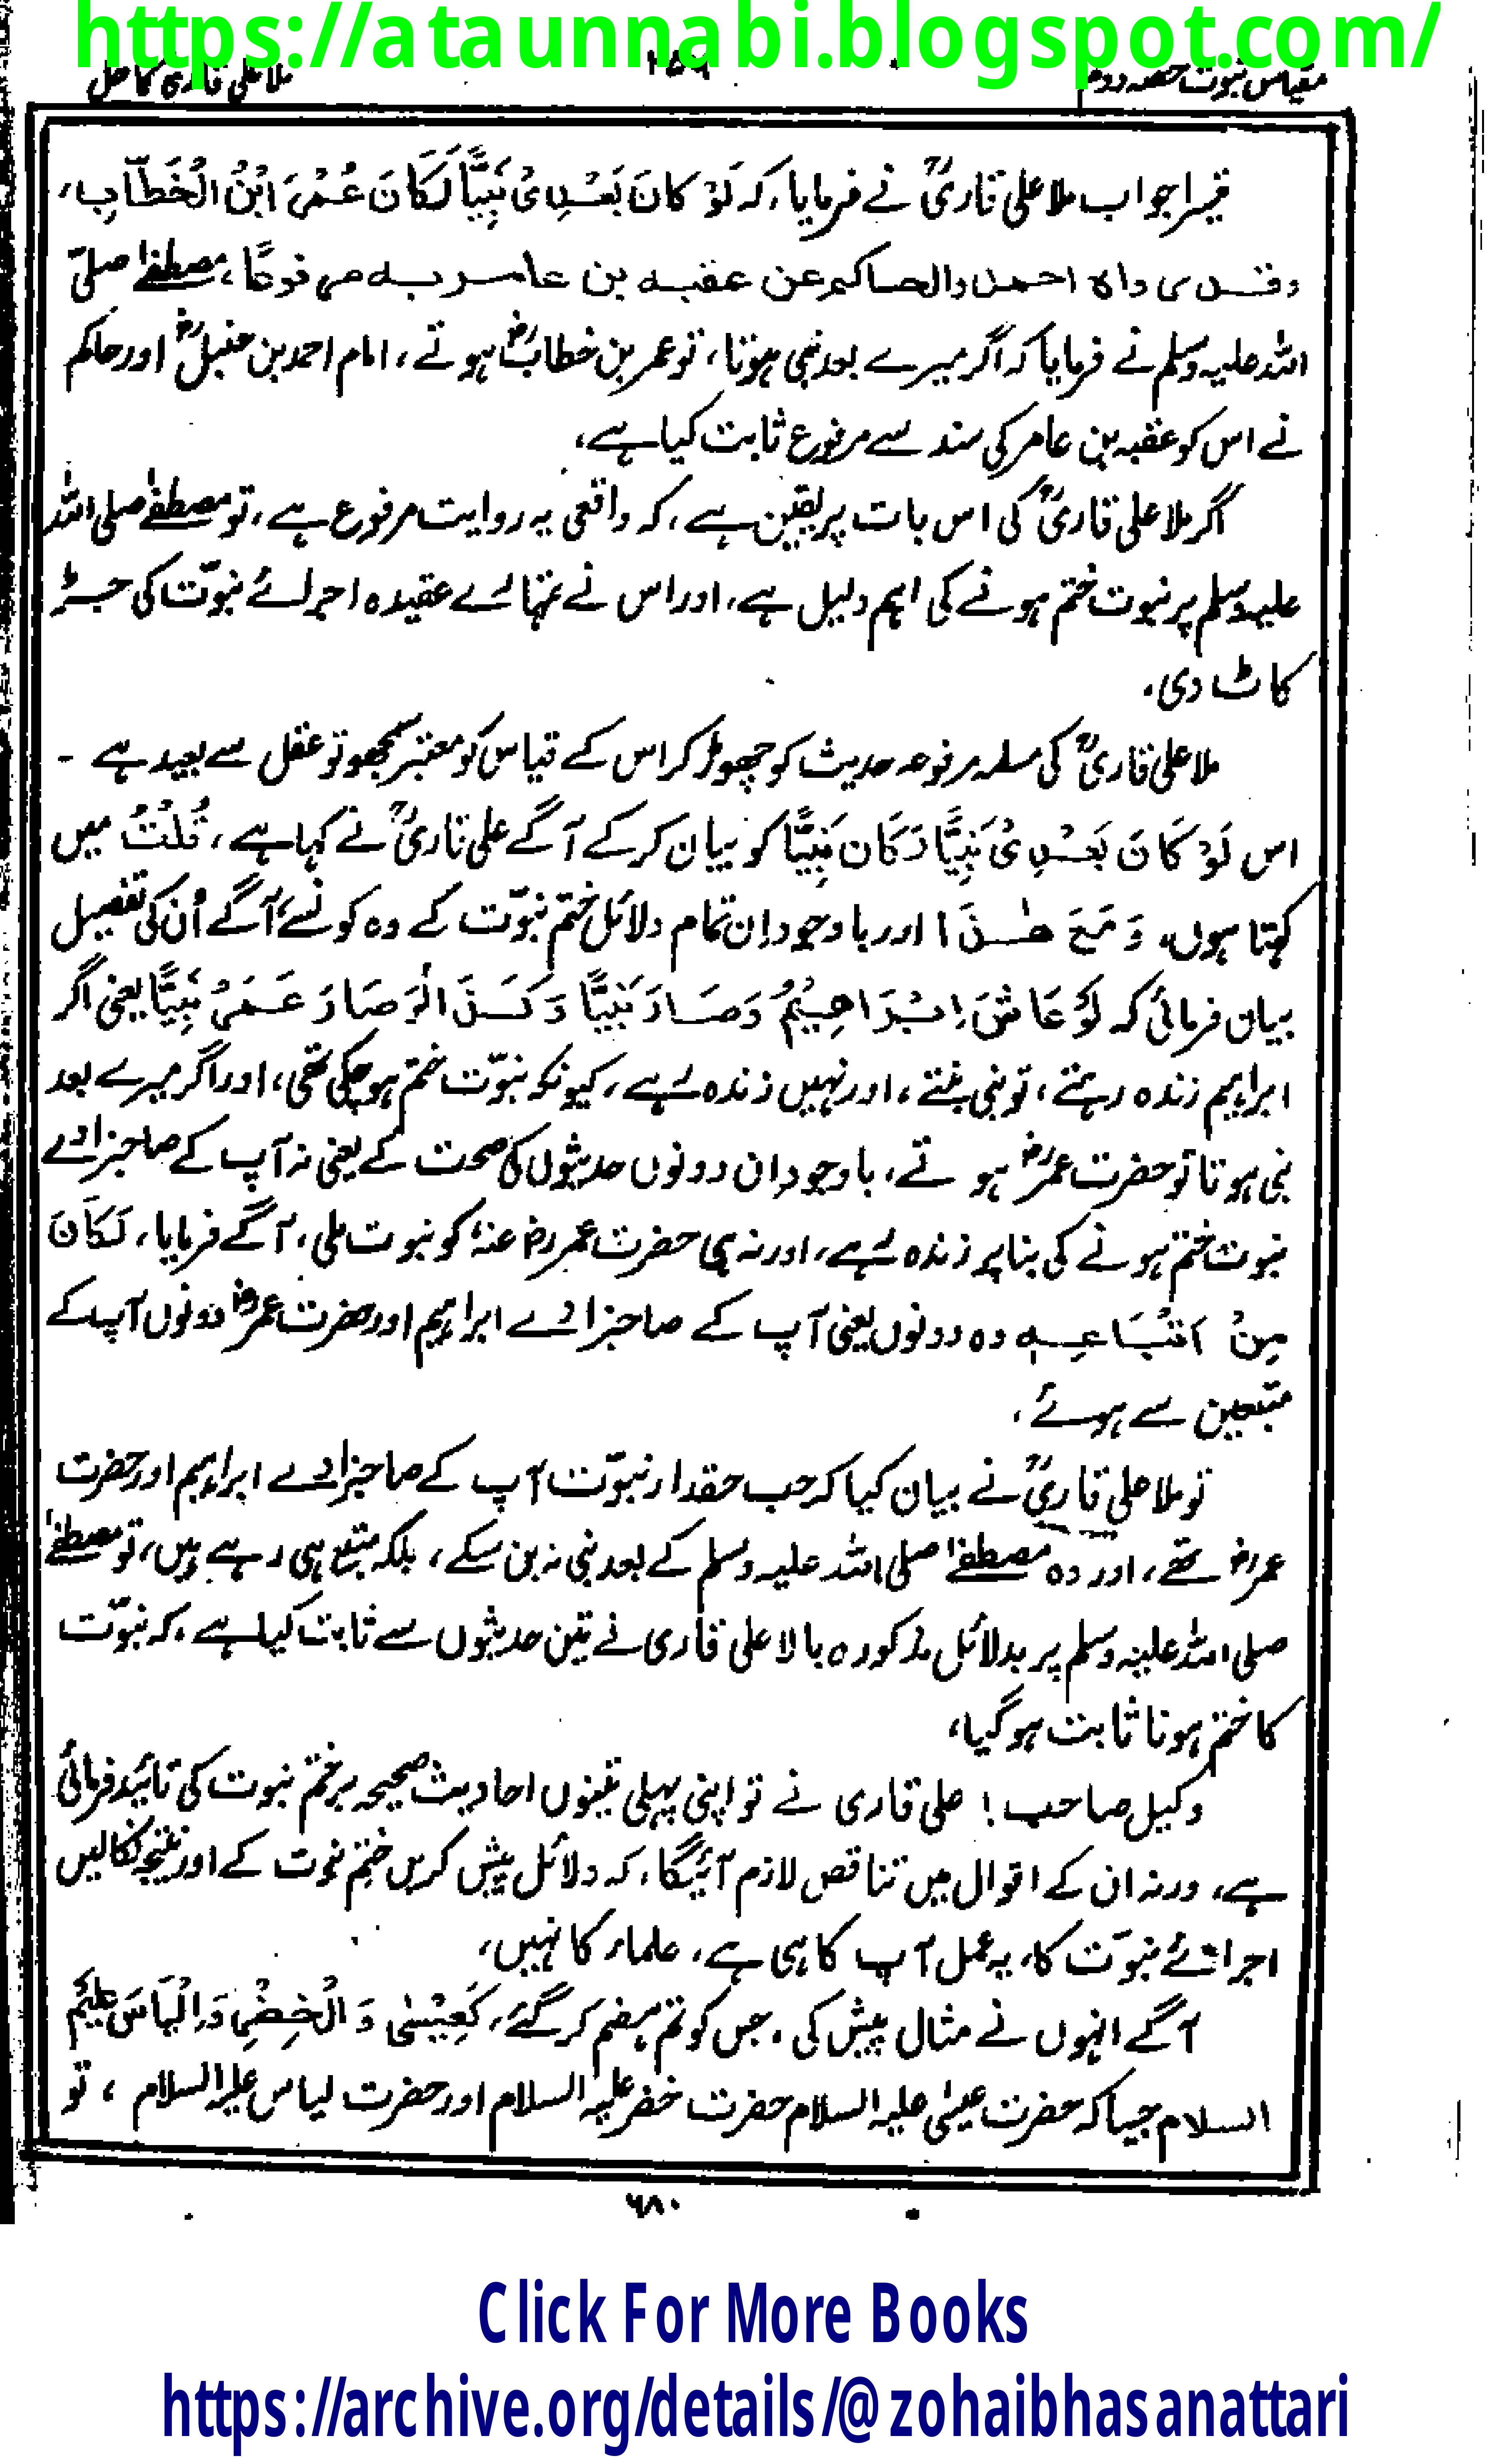 https://ataunnabi.blogspot.com/
مقیاس نبوت حصہ دوم
ملا علی قاری کا حل
تیسرا جواب ملا علی قاریؒ نے فرمایا، کہ لَوْ کَانَ بَعْدِیْ نَبِیًّا لَکَانَ عُمَرَ ابْنُ الْخَطَّابِ،
وقد رواہ احمد والحاکم عن عقبہ بن عامر بہ مرفوعًا، مصطفےٰ صلی
اللہ علیہ وسلم نے فرمایا کہ اگر میرے بعد نبی ہوتا، تو عمر بن خطابؓ ہوتے، امام احمد بن حنبلؒ اور حاکم
نے اس کو عقبہ بن عامر کی سند سے مرفوع ثابت کیا ہے،
اگر ملا علی قاریؒ کی اس بات پر یقین ہے، کہ واقعی یہ روایت مرفوع ہے، تو مصطفےٰ صلی اللہ
علیہ وسلم پر نبوت ختم ہونے کی اہم دلیل ہے، اور اس نے تمہارے عقیدہ اجرائے نبوّت کی جڑ
کاٹ دی۔
ملا علی قاریؒ کی مسلمہ مرفوعہ حدیث کو چھوڑ کر اس کے قیاس کو معتبر سمجھو تو عقل سے بعید ہے ۔
اس لَوْ کَانَ بَعْدِیْ نَبِیًّا لَکَانَ نَبِیًّا کو بیان کر کے آگے علی قاریؒ نے کہا ہے، قُلْتُ میں
کہتا ہوں، وَ مَعَ ھٰذَا اور باوجود اِن تمام دلائل ختم نبوّت کے وہ کونسے، آگے اُن کی تفصیل
بیان فرمائی کہ لَوْ عَاشَ اِبْرَاھِیْمُ وَصَارَ نَبِیًّا وَ کَذَا لَوْ صَارَ عُمَرُ نَبِیًّا یعنی اگر
ابراہیم زندہ رہتے، تو نبی بنتے، اور نہیں زندہ رہے، کیونکہ نبوّت ختم ہو چکی تھی، اور اگر میرے بعد
نبی ہوتا تو حضرت عمرؓ ہو تے، باوجود ان دونوں حدیثوں کی صحت کے یعنی نہ آپ کے صاحبزادے
نبوت ختم ہونے کی بنا پر زندہ رہے، اور نہ ہی حضرت عمر رضی عنہٗ کو نبوت ملی، آگے فرمایا، لَکَانَ
مِنْ اَتْبَاعِہٖ وہ دونوں یعنی آپ کے صاحبزادے ابراہیم اور حضرت عمرؓ دونوں آپ کے
متبعین سے ہوئے،
تو ملا علی قاریؒ نے بیان کیا کہ جب حقدار نبوّت آپ کے صاحبزادے ابراہیم اور حضرت
عمرؓ تھے، اور وہ مصطفےٰ صلی اللہ علیہ وسلم کے بعد نبی نہ بن سکے، بلکہ متبع ہی رہے ہیں، تو مصطفےٰ
صلی اللہ علیہ وسلم پر بدلائل مذکورہ بالا علی قاری نے تین حدیثوں سے ثابت کیا ہے، کہ نبوّت
کا ختم ہونا ثابت ہو گیا،
وکیل صاحب! علی قاری نے تو اپنی پہلی تینوں احادیث صحیحہ پر ختم نبوت کی تائید فرمائی
ہے، ورنہ ان کے اقوال میں تناقص لازم آئیگا، کہ دلائل پیش کریں ختم نبوت کے اور نتیجہ نکالیں
اجرائے نبوّت کا، یہ عمل آپ کا ہی ہے، علماء کا نہیں،
آگے انہوں نے مثال پیش کی، جس کو تم ہضم کر گئے، کَعِیْسٰی وَ الْخِضْرِ وَاِلْیَاسَ علیہم
السلام جیسا کہ حضرت عیسٰی علیہ السلام حضرت خضر علیہ السلام اور حضرت لیاس علیہ السلام، تو
۶۸۰
Click For More Books
https://archive.org/details/@zohaibhasanattari